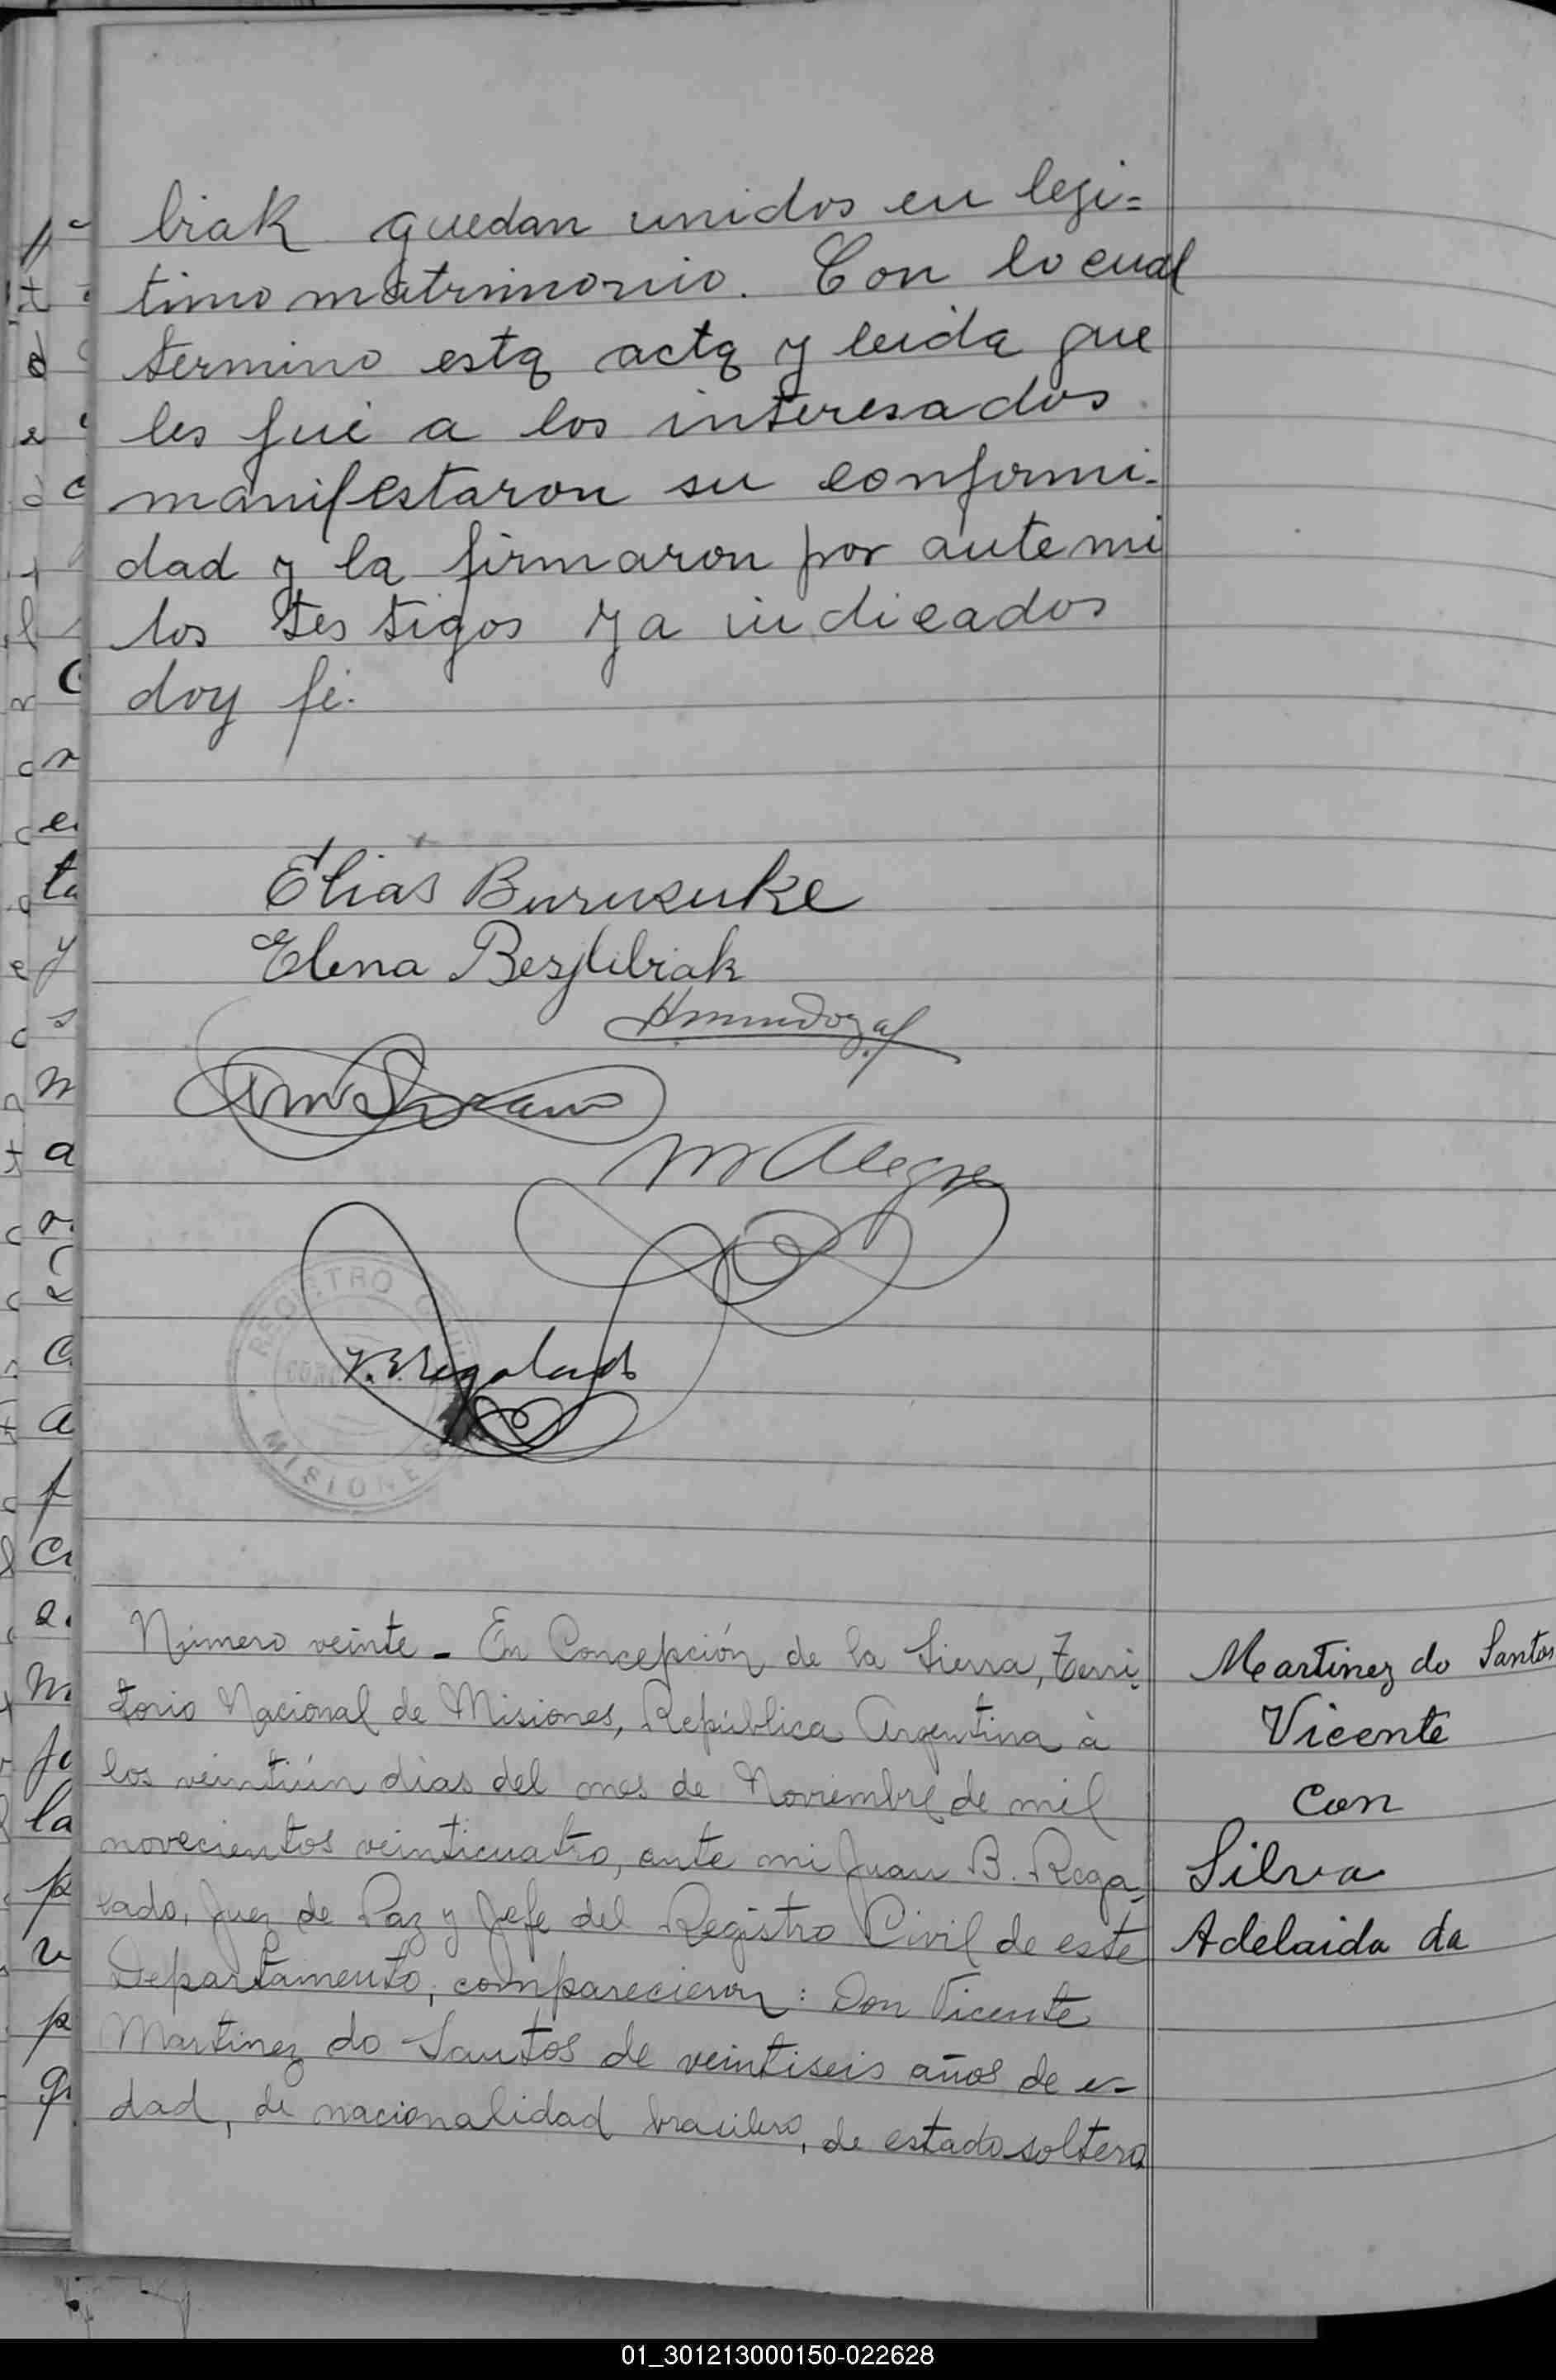 briak quedan unidos en legi=
timo matrimonio. Con lo cual
termino esta acta y leida que
les fué a los interesados
manifestaron su conformi-
dad y la firmaron por ante mi
los testigos ya indicados
doy fé.
Elias Burukuke
Elena Besjlibriak
HMendoza
M Alegre
J. B. Regalado
REGISTRO CIVIL
MISIONES
Número veinte - En Concepción de la Sierra, Terri-
torio Nacional de Misiones, República Argentina à
los veintiún dias del mes de Noviembre de mil
novecientos veinticuatro, ante mi Juan B. Rega-
lado, Juez de Paz y Jefe del Registro Civil de este
Departamento, comparecieron: Don Vicente
Martinez do Santos de veintiseis años de e-
dad, de nacionalidad brasilero, de estado soltero
Martinez do Santos
Vicente
con
Silva
Adelaida da
01_301213000150-022628